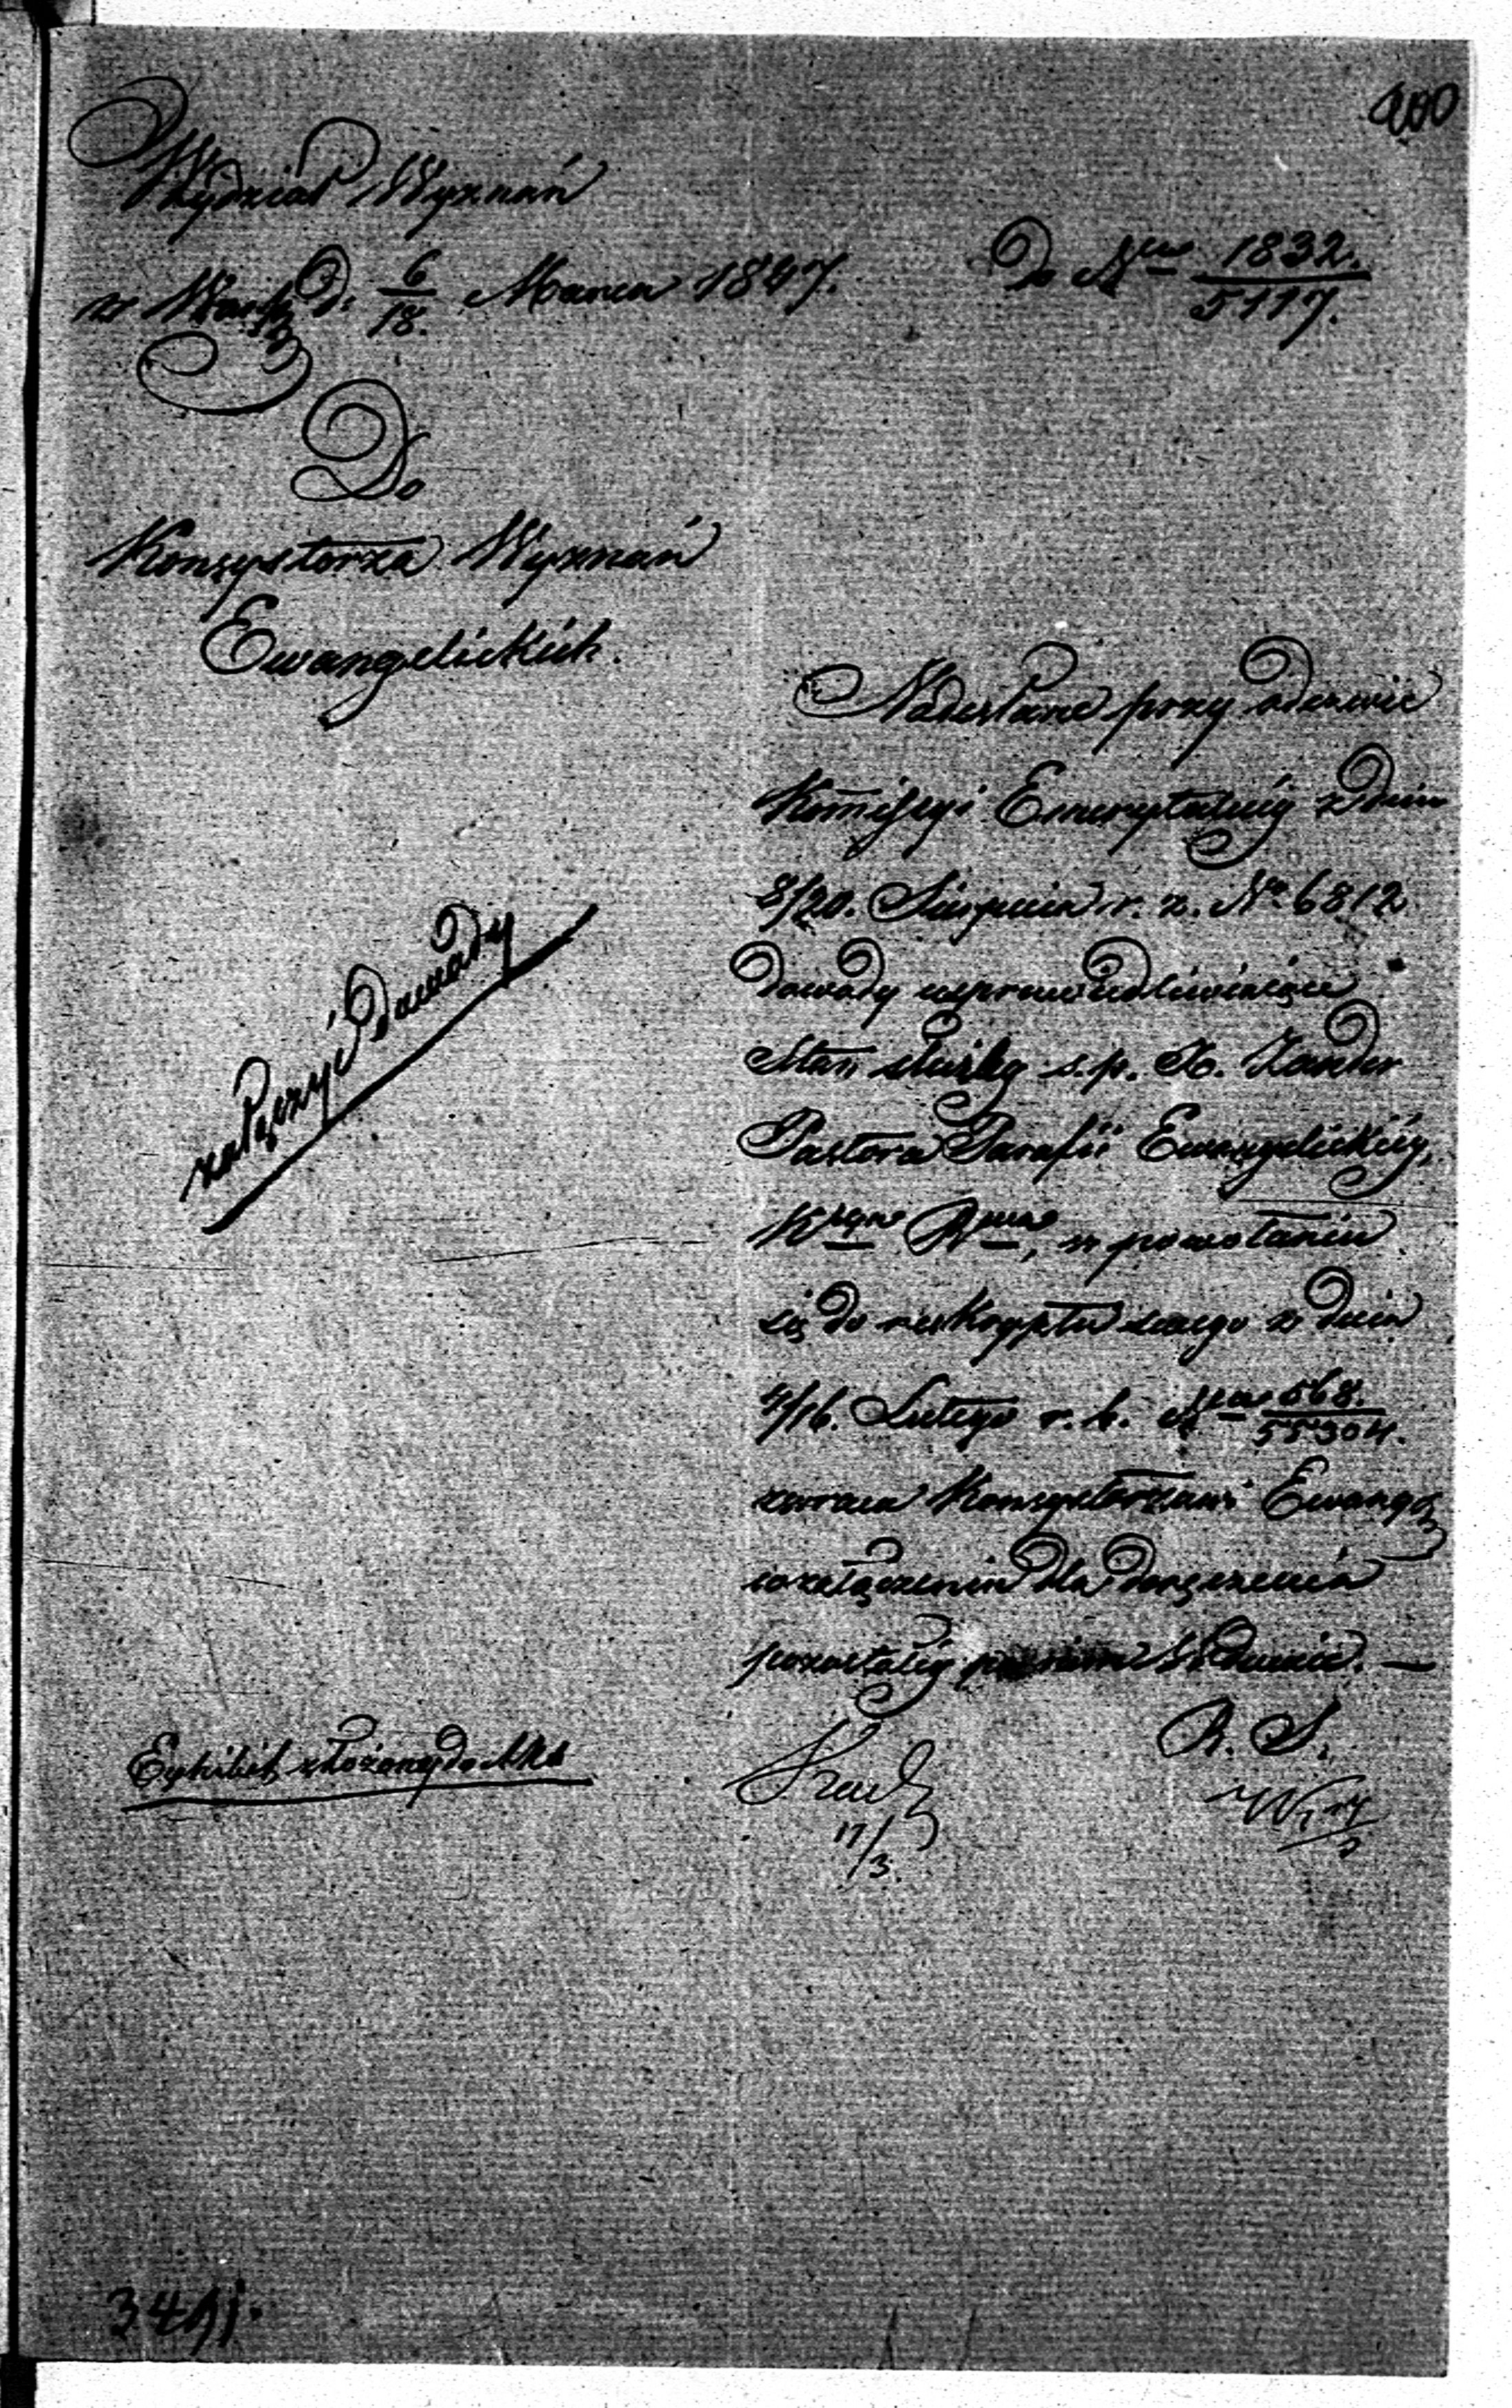 200
Wydział Wyznań
w Warsz d. 6/18. Marca 1847.
Do Nru 1832./5117.
Do
Konsystorza Wyznań
Ewangelickich.
Nadesłane przy odezwie
Komissyi Emerytalnéj z dnia
8/20. Sierpnia r. z. No 6812
dowody usprawiedliwiające
Stan służby ś. p. X. Zander
Pastora Parafii Ewangelickiéj,
w powołaniu
się do reskryptu swego z dnia
4/16. Lutego r. b. Nro 568./55304.
zwraca Konsystorzowi Ewang
w załączeniu dla doręczenia
pozostałéj po nim Wdowie. —
załączyć dowody
D. S.
17/3.
Exhibit złożony do Akt